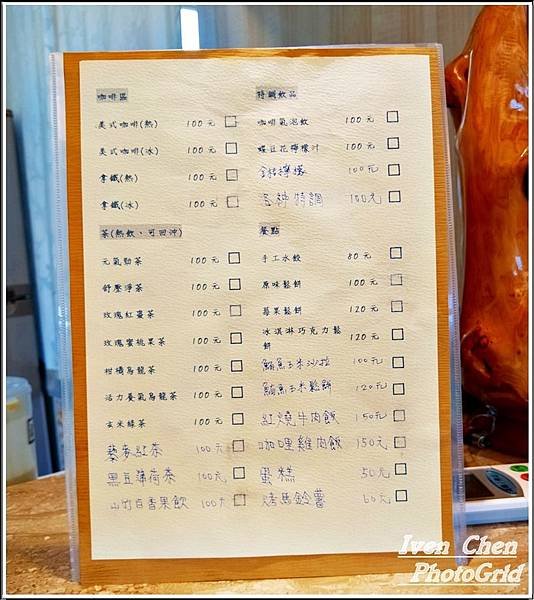 咖啡區
美式咖啡(熱) 100元
美式咖啡(冰) 100元
拿鐵(熱) 100元
拿鐵(冰) 100元
茶(熱飲、可回沖)
元氣勁茶 100元
舒壓淨茶 100元
玫瑰紅棗茶 100元
玫瑰蜜桃果茶 100元
柑橘烏龍茶 100元
活力養氣烏龍茶 100元
玄米綠茶 100元
紅茶 100元
黑豆薄荷茶 100元
百香果飲 100元
特調飲品
咖啡氣泡飲 100元
蝶豆花檸檬汁 100元
金桔檸檬 100元
洛神特調 100元
餐點
手工水餃 80元
原味鬆餅 100元
莓果鬆餅 120元
冰淇淋巧克力鬆
餅 120元
鮪魚玉米沙拉 100元
鮪魚玉米鬆餅 120元
紅燒牛肉飯 150元
咖哩雞肉飯 150元
蛋糕 50元
烤馬鈴薯 60元
Iven Chen
PhotoGrid